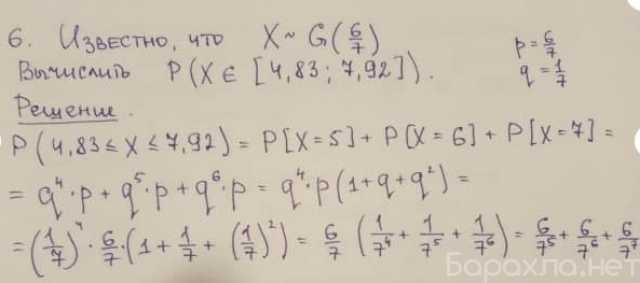 6. Известно, что X ~ G(6/7)
p = 6/7
Вычислить P(X ∈ [4,83; 7,92]).
q = 1/7
Решение.
P(4,83 ≤ X ≤ 7,92) = P[X=5] + P[X=6] + P[X=7] =
= q⁴·p + q⁵·p + q⁶·p = q⁴·p(1+q+q²) =
= (1/7)⁴ · 6/7 · (1 + 1/7 + (1/7)²) = 6/7 (1/7⁴ + 1/7⁵ + 1/7⁶) = 6/7⁵ + 6/7⁶ + 6/7⁷
Барахла.нет